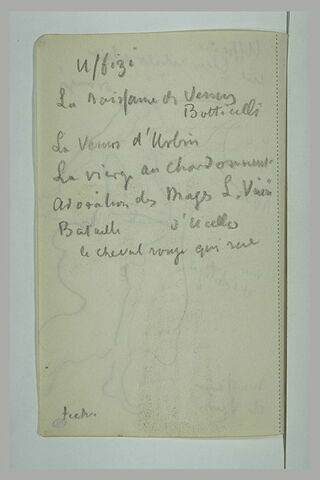 Uffizi
La naissance de Venus
Botticelli
La Venus d'Urbin
La vierge au chardonneret
Adoration des Mages L. Vinci
Bataille d'Ucello
le cheval rouge qui rue